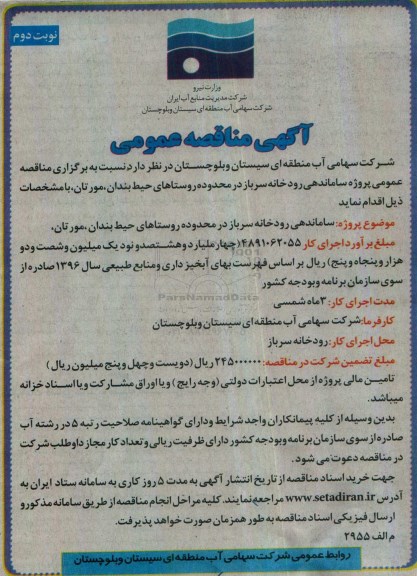 نوبت دوم
وزارت نیرو
شرکت مدیریت منابع آب ایران
شرکت سهامی آب منطقه ای سیستان وبلوچستان
آگهی مناقصه عمومی
شرکت سهامی آب منطقه ای سیستان وبلوچستان در نظر دارد نسبت به برگزاری مناقصه
عمومی پروژه ساماندهی رودخانه سرباز در محدوده روستاهای حیط بندان، مور تان، بامشخصات
ذیل اقدام نماید
موضوع پروژه: ساماندهی رودخانه سرباز در محدوده روستاهای حیط بندان، مور تان،
مبلغ برآورد اجرای کار ۴۸۹۱۰۶۲۰۵۵ (چهار ملیارد و هشتصدو نود یک میلیون و شصت ودو
هزار و پنجاه و پنج) ریال بر اساس فهرست بهای آبخیز داری و منابع طبیعی سال ۱۳۹۶ صادره از
سوی سازمان برنامه وبودجه کشور
مدت اجرای کار: ۳ماه شمسی
کارفرما: شرکت سهامی آب منطقه ای سیستان وبلوچستان
محل اجرای کار: رودخانه سرباز
مبلغ تضمین شرکت در مناقصه: ۲۴۵۰۰۰۰۰۰ ریال (دویست وچهل و پنج میلیون ریال)
تامین مالی پروژه از محل اعتبارات دولتی (وجه رایج) ویا اوراق مشارکت ویا اسناد خزانه
میباشد.
بدین وسیله از کلیه پیمانکاران واجد شرایط و دارای گواهینامه صلاحیت رتبه ۵ در رشته آب
صادره از سوی سازمان برنامه وبودجه کشور دارای ظرفیت ریالی و تعداد کار مجاز داوطلب شرکت
در مناقصه دعوت می شود.
جهت خرید اسناد مناقصه از تاریخ انتشار آگهی به مدت ۵ روز کاری به سامانه ستاد ایران به
آدرس www.setadiran.ir مراجعه نمایند. کلیه مراحل انجام مناقصه از طریق سامانه مذکور و
ارسال فیزیکی اسناد مناقصه به طور همزمان صورت خواهد پذیرفت.
م الف ۲۹۵۵
روابط عمومی شرکت سهامی آب منطقه ای سیستان وبلوچستان
ParsNamadData